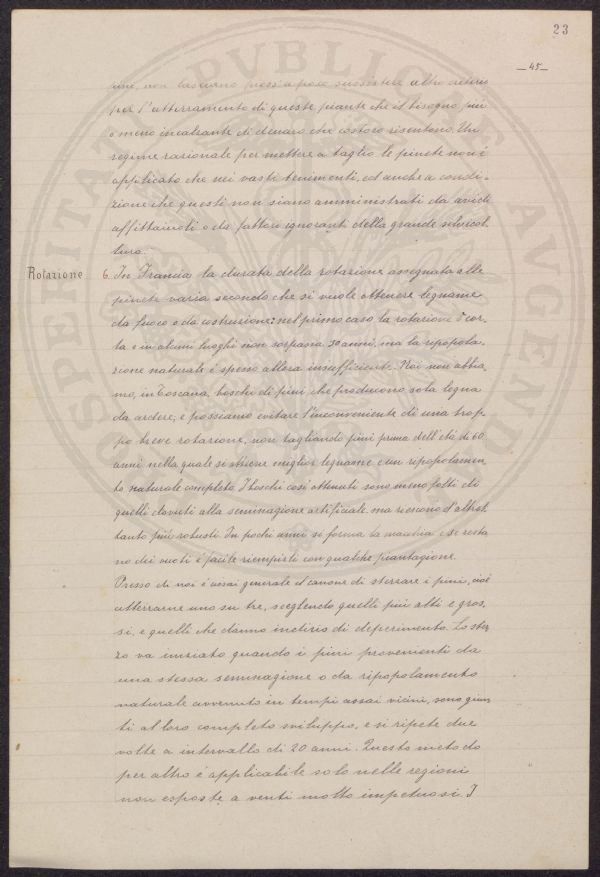 23
—45—
uni, non lasciano press'a poco sussistere altro criterio
per l'atterramento di queste piante che il bisogno più
o meno incalzante di denaro che costoro risentono. Un
regime razionale per mettere a taglio le pinete non è
applicato che nei vasti tenimenti, ed anche a condi-
zione che questi non siano amministrati da avidi
affittaiuoli o da fattori ignoranti della grande silvicol
tura.
Rotazione
6. In Francia la durata della rotazione assegnata alle
pinete varia secondo che si vuole ottenere legname
da fuoco o da costruzione: nel primo caso la rotazione è cor-
ta e in alcuni luoghi non sorpassa 30 anni, ma la ripopola-
zione naturale è spesso allora insufficiente. Noi non abbia-
mo, in Toscana, boschi di pini che producono sola legna
da ardere; e possiamo evitare l'inconveniente di una trop-
po breve rotazione, non tagliando pini prima dell'età di 60
anni nella quale si ottiene miglior legname e un ripopolamen-
to naturale completo. I boschi così ottenuti sono meno folti di
quelli dovuti alla seminagione artificiale ma riescono d'altret
tanto più robusti. In pochi anni si forma la macchia e se resta
no dei vuoti è facile riempirli con qualche piantagione.
Presso di noi è assai generale il canone di sterzare i pini, cioè
atterrarne uno su tre, scegliendo quelli più alti e gros,
si, e quelli che danno indizio di deperimento. Lo ster
zo va iniziato quando i pini provenienti da
una stessa seminagione o da ripopolamento
naturale avvenuto in tempi assai vicini, sono giun
ti al loro completo sviluppo, e si ripete due
volte a intervallo di 20 anni. Questo metodo
per altro è applicabile solo nelle regioni
non esposte a venti molto impetuosi. I
OSPITALITAS PVBLICAE AVGENDAE